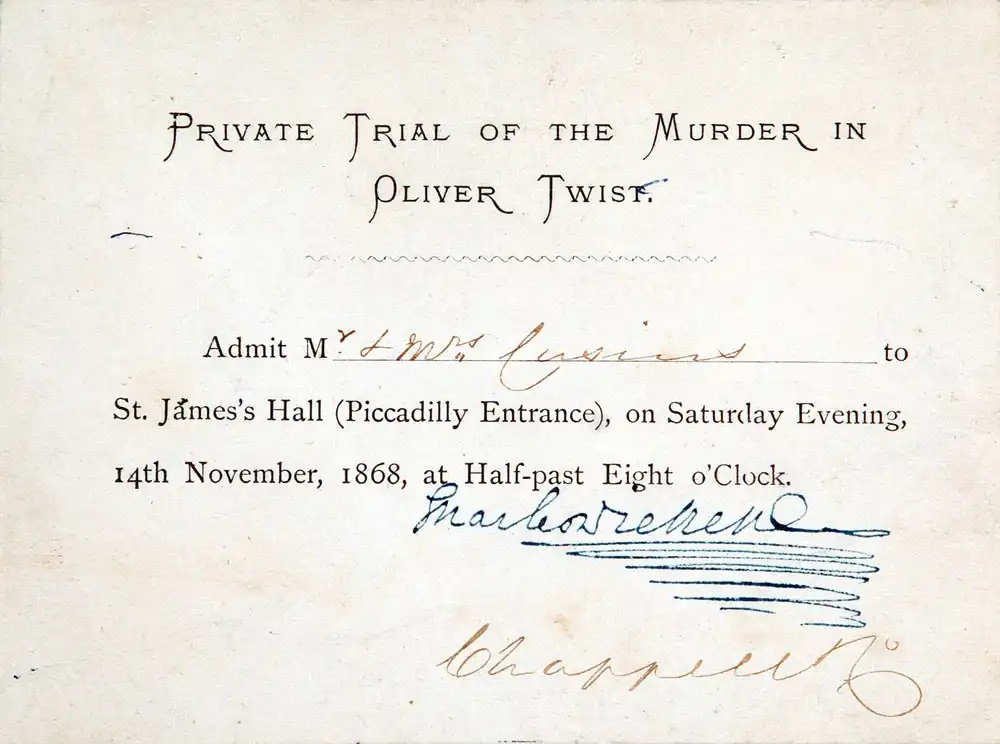 Private Trial of the Murder in
Oliver Twist.
Admit Mr. & Mrs Cusins to
St. James's Hall (Piccadilly Entrance), on Saturday Evening,
14th November, 1868, at Half-past Eight o'Clock.
Charles Dickens
Chappell & Co